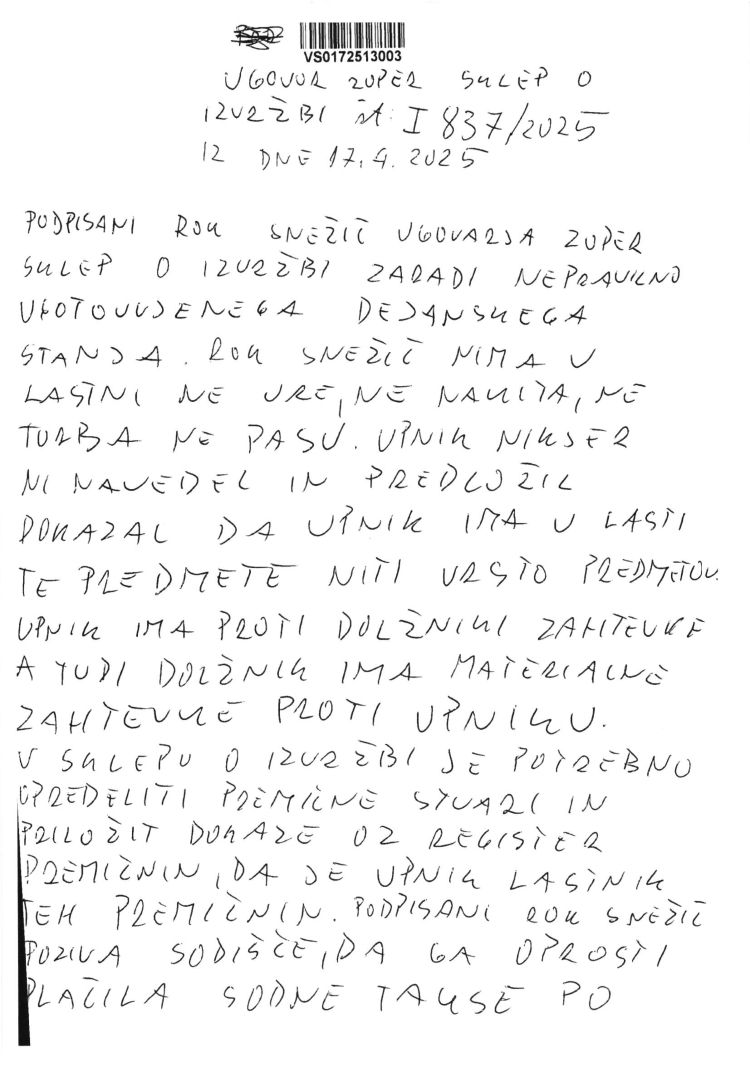 VS0172513003
UGOVOR ZOPER SKLEP O
IZVRŽBI št. I 837/2025
IZ DNE 17.4.2025
PODPISANI ROK SNEŽIČ UGOVARJA ZOPER
SKLEP O IZVRŽBI ZARADI NEPRAVILNO
UGOTOVVJENEGA DEJANSKEGA
STANJA. ROK SNEŽIČ NIMA V
LASTNI NE URE, NE NAKITA, NE
TORBA NE PASU. UPNIK NIKJER
NI NAVEDEL IN PREDLOŽIL
DOKAZAL DA UPNIK IMA V LASTI
TE PREDMETE NITI VRSTO PREDMETOV.
UPNIK IMA PROTI DOLŽNIKI ZAHTEVKE
A TUDI DOLŽNIK IMA MATERIALNE
ZAHTEVKE PROTI UPNIKU.
V SKLEPU O IZVRŽBI JE POTREBNO
OPREDELITI PREMIČNE STVARI IN
PRILOŽIT DOKAZE OZ REGISTER
PREMIČNIN, DA JE UPNIK LASTNIK
TEH PREMIČNIN. PODPISANI ROK SNEŽIČ
POZIVA SODIŠČE, DA GA OPROSTI
PLAČILA SODNE TAKSE PO